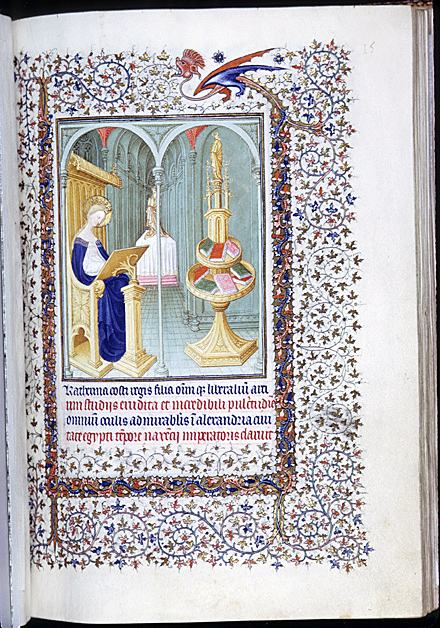 15
Katherina costi regis filia om̄ q̄ liberaliū arti
um studijs erudita et incredibili pulcritudīe
omniū oculis admirabilis ī alexandria ciui
tate egypti tēpore maxēcij imperatoris claruit